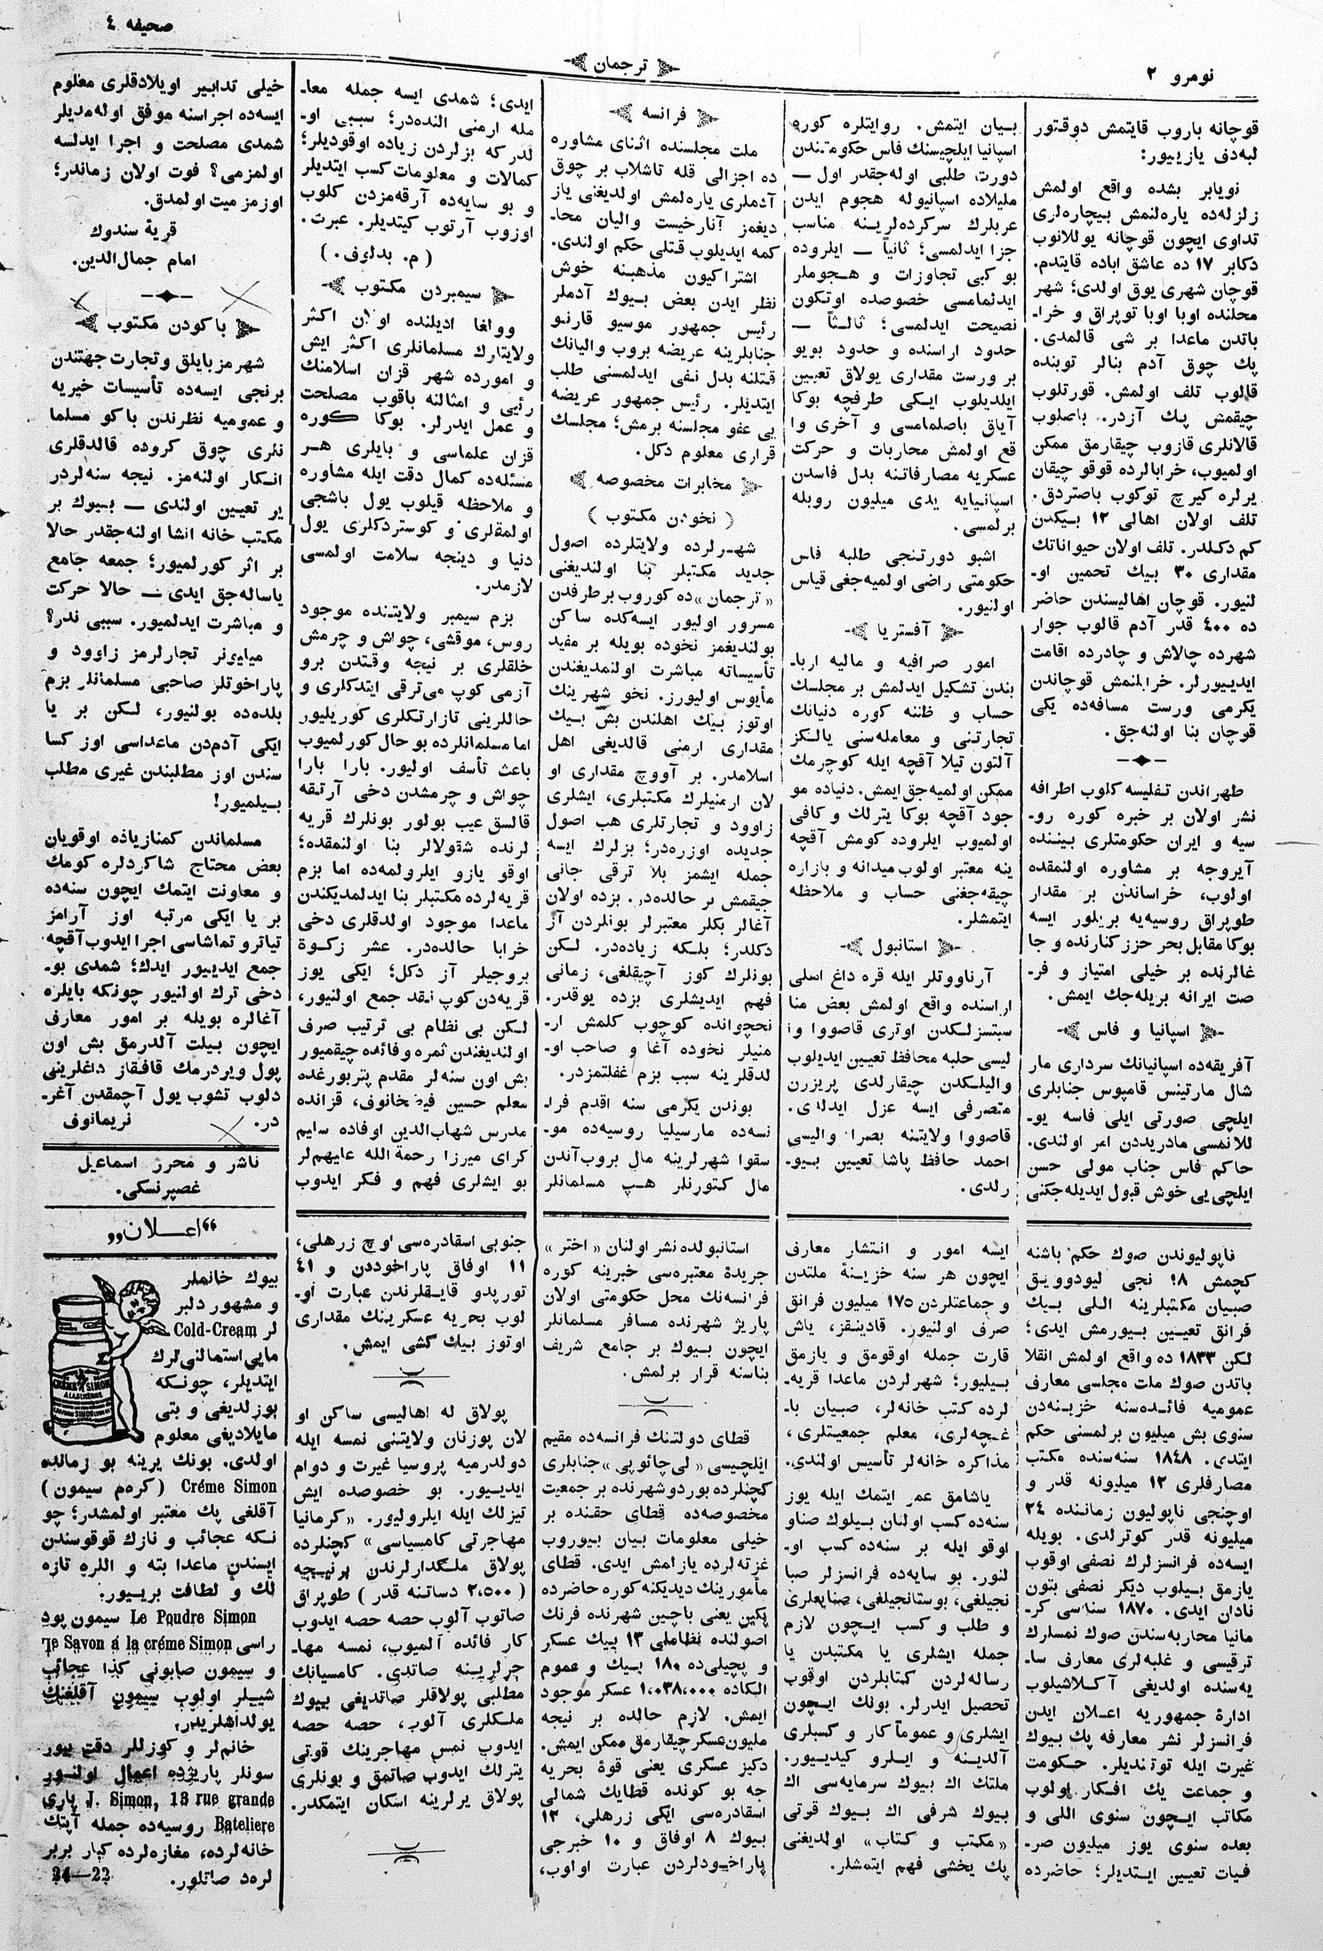 نومرو ٢
ترجمان
صحیفه ٤
قوچانه باروب قایتمش دوقتور
لبه‌دف یازیور:
نویابر بشده واقع اولمش
زلزله‌ده یاره‌لنمش بیچاره‌لری
تداوی ایچون قوچانه یوللانوب
دکابر ١٧ ده عاشق اباده قایتدم.
قوچان شهری یوق اولدی؛ شهر
محلنده اوبا اوبا توپراق و خرا۔
باتدن ماعدا بر شی قالمدی.
پك چوق آدم بنالر توبنده
قالوب تلف اولمش. قورتلوب
چیقمش پك آزدر. باصلوب
قالانلری قازوب چیقارمق ممکن
اولمیوب، خرابالرده قوقو چیقان
یرلره کیرچ توکوب باصتردق.
تلف اولان اهالی ١٢ بیکدن
کم دکلدر. تلف اولان حیواناتك
مقداری ٣٠ بیك تحمین او۔
لنیور. قوچان اهالیسندن حاضر
ده ٤٠٠ قدر آدم قالوب جوار
شهرده چالاش و چادرده اقامت
ایدیورلر. خرابلنمش قوچاندن
یکرمی ورست مسافه‌ده یکی
قوچان بنا اولنه‌جق.
طهراندن تفلیسه کلوب اطرافه
نشر اولان بر خبره کوره رو۔
سیه و ایران حکومتلری بیننده
آیروجه بر مشاوره اولنمقده
اولوب، خراساندن بر مقدار
طوپراق روسیه‌یه بریلور ایسه
بوکا مقابل بحر حزز کنارنده و جا
غالرنده بر خیلی امتیاز و فر۔
صت ایرانه بریله‌جك ایمش.
اسپانیا و فاس
آفریقه‌ده اسپانیانك سرداری مار
شال مارتینس قامپوس جنابلری
ایلچی صورتی ایلی فاسه یو۔
للانمسی مادریددن امر اولندی.
حاکم فاس جناب مولی حسن
ایلچی یی خوش قبول ایدیله‌جکنی
بیان ایتمش. روایتلره کوره
اسپانیا ایلچیسنك فاس حکومتندن
دورت طلبی اوله‌جقدر اول —
ملیلاده اسپانیوله هجوم ایدن
عربلرك سرکرده‌لرینه مناسب
جزا ایدلمسی؛ ثانیاً — ایلروده
بو کبی تجاوزات و هجوملر
ایدلمامسی خصوصده اوتکون
نصیحت ایدلمسی؛ ثالثاً —
حدود اراسنده و حدود بویو
بر ورست مقداری یولاق تعیین
ایلدیلوب ایکی طرفچه بوکا
آیاق باصلمامسی و آخری وا
قع اولمش محاربات و حرکت
عسکریه مصارفاتنه بدل فاسدن
اسپانیایه یدی میلیون روبله
برلمسی.
اشبو دورتنجی طلبه فاس
حکومتی راضی اولمیه‌جغی قیاس
اولنیور.
آفستریا
امور صرافیه و مالیه اربا۔
بندن تشکیل ایدلمش بر مجلسك
حساب و ظننه کوره دنیانك
تجارتنی و معامله‌سنی یالکز
آلتون تیلا آقچه ایله کوچرمك
ممکن اولمیه‌جق ایمش. دنیاده مو
جود آقچه بوکا یترلك و کافی
اولمیوب ایلروده کومش آقچه
ینه معتبر اولوب میدانه و بازاره
چیقه‌جغنی حساب و ملاحظه
ایتمشلر.
استانبول
آرناووتلر ایله قره داغ اهلی
اراسنده واقع اولمش بعض منا
سبتسزلکدن اوتری قاصووا و ا
لیسی حلبه محافظ تعیین ایدیلوب
والیلکدن چیقارلدی پریزرن
متصرفی ایسه عزل ایدلدی.
قاصووا ولایتنه بصرا والیسی
احمد حافظ پاشا تعیین بیو۔
رلدی.
فرانسه
ملت مجلسنده اثنای مشاوره
ده اجزالی قله تاشلاب بر چوق
آدملری یاره‌لمش اولدیغنی یاز
دیغمز آنارخیست والیان محا۔
کمه ایدیلوب قتلی حکم اولندی.
اشتراکیون مذهبنه خوش
نظر ایدن بعض بیوك آدملر
رئیس جمهور موسیو قارنو
جنابلرینه عریضه بروب والیانك
قتلنه بدل نفی ایدلمسنی طلب
ایتدیلر. رئیس جمهور عریضه
یی عفو مجلسنه برمش؛ مجلسك
قراری معلوم دکل.
مخابرات مخصوصه
( نخودن مکتوب )
شهرلرده ولایتلرده اصول
جدید مکتبلر بنا اولندیغنی
«ترجمان»ده کوروب برطرفدن
مسرور اولیور ایسه‌کده ساکن
بولندیغمز نخوده بویله بر مفید
تأسیساته مباشرت اولنمدیغندن
مأیوس اولیورز. نخو شهرینك
اوتوز بیك اهلندن بش بیك
مقداری ارمنی قالدیغی اهل
اسلامدر. بر آووچ مقداری او
لان ارمنیلرك مکتبلری، ایشلری
زاوود و تجارتلری هب اصول
جدیده اوزره‌در؛ بزلرك ایسه
جمله ایشمز بلا ترقی جانی
جیقمش بر حالده‌در. بزده اولان
آغالر بکلر معتبرلر بونلردن آز
دکلدر؛ بلکه زیاده‌در. لکن
بونلرك کوز آچیقلغی، زمانی
فهم ایدیشلری بزده یوقدر.
نخچوانده کوچوب کلمش ار۔
منیلر نخوده آغا و صاحب او۔
لدقلرینه سبب بزم غفلتمزدر.
بوندن یکرمی سنه اقدم فرا۔
نسه‌ده مارسیلیا روسیه‌ده مو۔
سقوا شهرلرینه مال بروب‌آندن
مال کتورنلر هپ مسلمانلر
ایدی؛ شمدی ایسه جمله معا۔
مله ارمنی النده‌در؛ سببی او۔
لدر که بزلردن زیاده اوقودیلر؛
کمالات و معلومات کسب ایتدیلر
و بو سایه‌ده آرقه‌مزدن کلوب
اوزوب آرتوب کیتدیلر. عبرت.
( م. بدلوف. )
سیمبردن مکتوب
وولغا ادیلنده اولان اکثر
ولایتلرك مسلمانلری اکثر ایش
و امورده شهر قزان اسلامنك
رئیی و امثالنه باقوب مصلحت
و عمل ایدرلر. بوکا کوره
قزان علماسی و بایلری هر
مسئله‌ده کمال دقت ایله مشاوره
و ملاحظه قیلوب یول باشجی
اولمقلری و کوستردکلری یول
دنیا و دینجه سلامت اولمسی
لازمدر.
بزم سیمبر ولایتنده موجود
روس، موقشی، چواش و چرمش
خلقلری بر نیجه وقتدن برو
آزمی کوپ می‌ترقی ایتدکلری و
حاللرینی تازارتکلری کوریلیور
اما مسلمانلرده بو حال کورلمیوب
باعث تأسف اولیور. بارا بارا
چواش و چرمشدن دخی آرتقه
قالسق عیب بولور بونلرك قریه
لرنده شقولالر بنا اولنمقده؛
اوقو یازو ایلرولمه‌ده اما بزم
قریه‌لرده مکتبلر بنا ایدلمدیکندن
ماعدا موجود اولدقلری دخی
خرابا حالده‌در. عشر زکوة
بروجیلر آز دکل؛ ایکی یوز
قریه‌دن کوپ نقد جمع اولنیور،
لکن بی نظام بی ترتیب صرف
اولندیغندن ثمره و فائده چیقمیور
بش اون سنه‌لر مقدم پتربورغده
معلم حسین فیضخانوف، قزانده
مدرس شهاب‌الدین اوفاده سایم
کرای میرزا رحمة الله علیهم‌لر
بو ایشلری فهم و فکر ایدوب
خیلی تدابیر اویلادقلری معلوم
ایسه‌ده اجراسنه موفق اوله‌مدیلر
شمدی مصلحت و اجرا ایدلسه
اولمزمی؟ فوت اولان زماندر؛
اوزمز میت اولمدق.
قریهٔ سندوك
امام جمال‌الدین.
باکودن مکتوب
شهرمز بایلق و تجارت جهتندن
برنجی ایسه‌ده تأسیسات خیریه
و عمومیه نظرندن باکو مسلما
نلری چوق کروده قالدقلری
انکار اولنه‌مز. نیجه سنه‌لردر
یر تعیین اولندی — بیوك بر
مکتب خانه انشا اولنه‌جقدر حالا
بر اثر کورلمیور؛ جمعه جامع
یاساله‌جق ایدی — حالا حرکت
و مباشرت ایدلمیور. سببی ندر؟
میلیونر تجارلرمز زاوود و
پاراخوتلر صاحبی مسلمانلر بزم
بلده‌ده بولنیور، لکن بر یا
ایکی آدم‌دن ماعداسی اوز کسا
سندن اوز مطلبندن غیری مطلب
بیلمیور!
مسلماندن کمنازیاده اوقویان
بعض محتاج شاکردلره کومك
و معاونت ایتمك ایچون سنه‌ده
بر یا ایکی مرتبه اوز آرامز
تیاترو تماشاسی اجرا ایدوب آقچه
جمع ایدیور ایدك؛ شمدی بو۔
دخی ترك اولنیور چونکه بایلره
آغالره بویله بر امور معارف
ایچون بیلت آلدرمق بش اون
پول ویردرمك قافقاز داغلرینی
دلوب تشوب یول آچمقدن آغر۔
در. نریمانوف
ناشر و محرر اسماعیل
غصپرنسکی.
ناپولیوندن صوك حکم باشنه
کچمش ١٨ نجی لیودوویق
صبیان مکتبلرینه اللی بیك
فرانق تعیین بیورمش ایدی؛
لکن ١٨٣٣ ده واقع اولمش انقلا
باتدن صوك ملت مجلسی معارف
عمومیه فائده‌سنه خزینه‌دن
سنوی بش میلیون برلمسنی حکم
ایتدی. ١٨٤٨ سنه‌سنده مکتب
مصارفلری ١٢ میلیونه قدر و
اوچنجی ناپولیون زماننده ٢٤
میلیونه قدر کوترلدی. بویله
ایسه‌ده فرانسزلرك نصفی اوقوب
یازمق بیلوب دیگر نصفی بتون
نادان ایدی. ١٨٧٠ سناسی کر۔
مانیا محاربه‌سندن صوك نمسلرك
ترقیسی و غلبه‌لری معارف سا۔
یه‌سنده اولدیغی آکلاشیلوب
ادارهٔ جمهوریه اعلان ایدن
فرانسزلر نشر معارفه پك بیوك
غیرت ایله توتندیلر. حکومت
و جماعت یك افکار اولوب
مکاتب ایچون سنوی اللی و
بعده سنوی یوز میلیون صر۔
فیات تعیین ایتدیلر؛ حاضرده
ایسه امور و انتشار معارف
ایچون هر سنه خزینهٔ ملتدن
و جماعتلردن ١٧٥ میلیون فرانق
صرف اولنیور. قادینقز، یاش
قارت جمله اوقومق و یازمق
بیلیور؛ شهرلردن ماعدا قریه۔
لرده کتب خانه‌لر، صبیان با۔
غچه‌لری، معلم جمعیتلری،
مذاکره خانه‌لر تأسیس اولندی.
یاشامق عمر ایتمك ایله یوز
سنه‌ده کسب اولنان بیلوك صناو
اوقو ایله بر سنه‌ده کسب او۔
لنور. بو سایه‌ده فرانسزلر صبا
نجیلغی، بوستانجیلغی، صنایعلری
و طلب و کسب ایچون لازم
جمله ایشلری یا مکتبندن یا
رساله‌لردن کتابلردن اوقوب
تحصیل ایدرلر. بونك ایچون
ایشلری و عموماً کار و کسبلری
آلدینه و ایلرو کیدیور.
ملتك اك بیوك سرمایه‌سی اك
بیوك شرفی اك بیوك قرتی
«مکتب و کتاب» اولدیغنی
پك یخشی فهم ایتمشلر.
استانبولده نشر اولنان «اختر»
جریدهٔ معتبره‌سی خبرینه کوره
فرانسه‌نك محل حکومتی اولان
پاریژ شهرنده مسافر مسلمانلر
ایچون بیوك بر جامع شریف
بناسنه قرار برلمش.
قطای دولتنك فرانسه‌ده مقیم
ایلچیسی «لی‌چائوپی» جنابلری
کچنلرده بوردو شهرنده بر جمعیت
مخصوصه‌ده قطای حقنده بر
خیلی معلومات بیان بیوروب
غزته‌لرده یازلمش ایدی. قطای
مأمورینك دیدیکنه کوره حاضرده
پکین یعنی باچین شهرنده فرنك
اصولنده نظاملی ١٣ بیك عسکر
و پچیلی‌ده ١٨٠ بیك و عموم
الکاده ١٠٣٨٠٠٠ عسکر موجود
ایمش. لازم حالده بر نیجه
ملیون عسکر چیقارمق ممکن ایمش.
دکیز عسکری یعنی قوهٔ بحریه
جه بو کونده قطایك شمالی
اسقادره‌سی ایکی زرهلی، ١٢
بیوك ٨ اوفاق و ١٠ خبرجی
پاراخودلردن عبارت اولوب،
جنوبی اسقادره‌سی اوچ زرهلی،
١١ اوفاق پاراخوددن و ٤١
تورپدو قایقلرندن عبارت او۔
لوب بحریه عسکرینك مقداری
اوتوز بیك کشی ایمش.
پولاق له اهالیسی ساکن او
لان پوزنان ولایتنی نمسه ایله
دولدرمیه پروسیا غیرت و دوام
ایدیور. بو خصوصده ایش
تیزلك ایله ایلرولیور. «کرمانیا
مهاجرتی کامیسیاسی» کچنلرده
پولاق ملکدارلرندن برنیچه
(٢،٥٠٠ دساتنه قدر) طوپراق
صاتوب آلوب حصه حصه ایدوب
کار فائده آلمیوب، نمسه مها۔
جرلرینه صاتدی. کامسیانك
مطلبی پولاقلر صاتدیغی بیوك
ملکلری آلوب، حصه حصه
ایدوب نمس مهاجرینك قوتی
یترلك ایدوب صاتمق و بونلری
پولاق یرلرینه اسکان ایتمکدر.
“اعلان„
بیوك خانملر
و مشهور دلبر
لر Cold-Cream
مایی استعمالنی ترك
ایتدیلر، چونکه
یوز لدیغی و بتی
مایلادیغی معلوم
اولدی. بونك یرینه بو زمانده
Créme Simon (کرم سیمون)
آقلغی پك معتبر اولمشدر؛ چو
نکه عجائب و نازك قوقوسندن
ایسندن ماعدا بته و اللره تازه
لك و لطافت بریور:
Le Poudre Simon سیمون پود
راسی Le Savon á la créme Simon
و سیمون صابونی کذا عجائب
شیلر اولوب سیمون آقلغنك
یولداشلریدر.
خانملر و کوزللر دقت بیور
سونلر پاریژده اعمال اولنور
J. Simon, 13 rue grande پاری
Bateliere روسیه‌ده جمله آپتك
خانه‌لرده، مغازه‌لرده کبار بربر
لرده صاتلور. 24—22
CRÈME SIMON